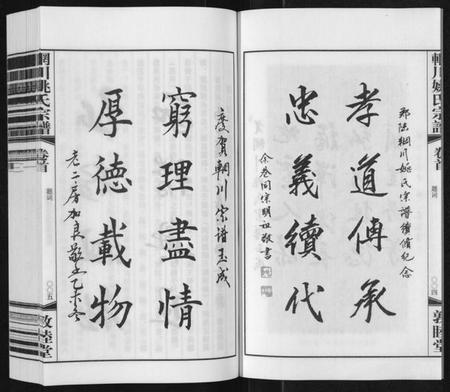 輞川姚氏宗譜
卷首
題詞
〇〇四
敦睦堂
邵陵輞川姚氏宗譜續修紀念
孝道傳承
忠義續代
宗明
敬書
慶賀輞川宗譜玉成
窮理盡情
厚德載物
老二房加良敬上乙未冬
輞川姚氏宗譜
卷首
題詞
〇〇五
敦睦堂